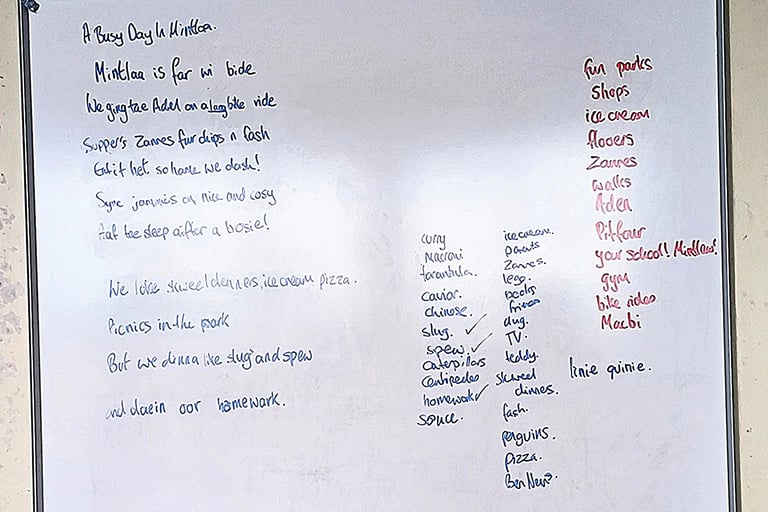 A Busy Day In Mintlaa.
Mintlaa is far wi bide
We ging tae Adel on a lang bike ride
Supper's Zannes fur chips n fash
Eat it het, so hame we dash!
Syne jammies on nice and cosy
Aaf tae sleep aifter a bosie!
We loke skweel denners, ice cream, pizza.
Picnics in the park
But we dinna like slug and spew
and daein oor homewark.
curry
Macroni
tarantula.
Caviar.
chinese.
slug. ✓
spew ✓
caterpillars
Centipedes
homework ✓
sauce.
ice cream.
parents
Zannes.
lego.
books
friends
dug.
TV.
teddy.
skweel
dinnes.
fash.
penguins.
pizza.
Ben Nevis.
fun parks
Shops
ice cream
flooers
Zannes
walks
Aden
Pitfour
your school! Mintlaw!
gym
bike rides
Macbi
linie quinie.